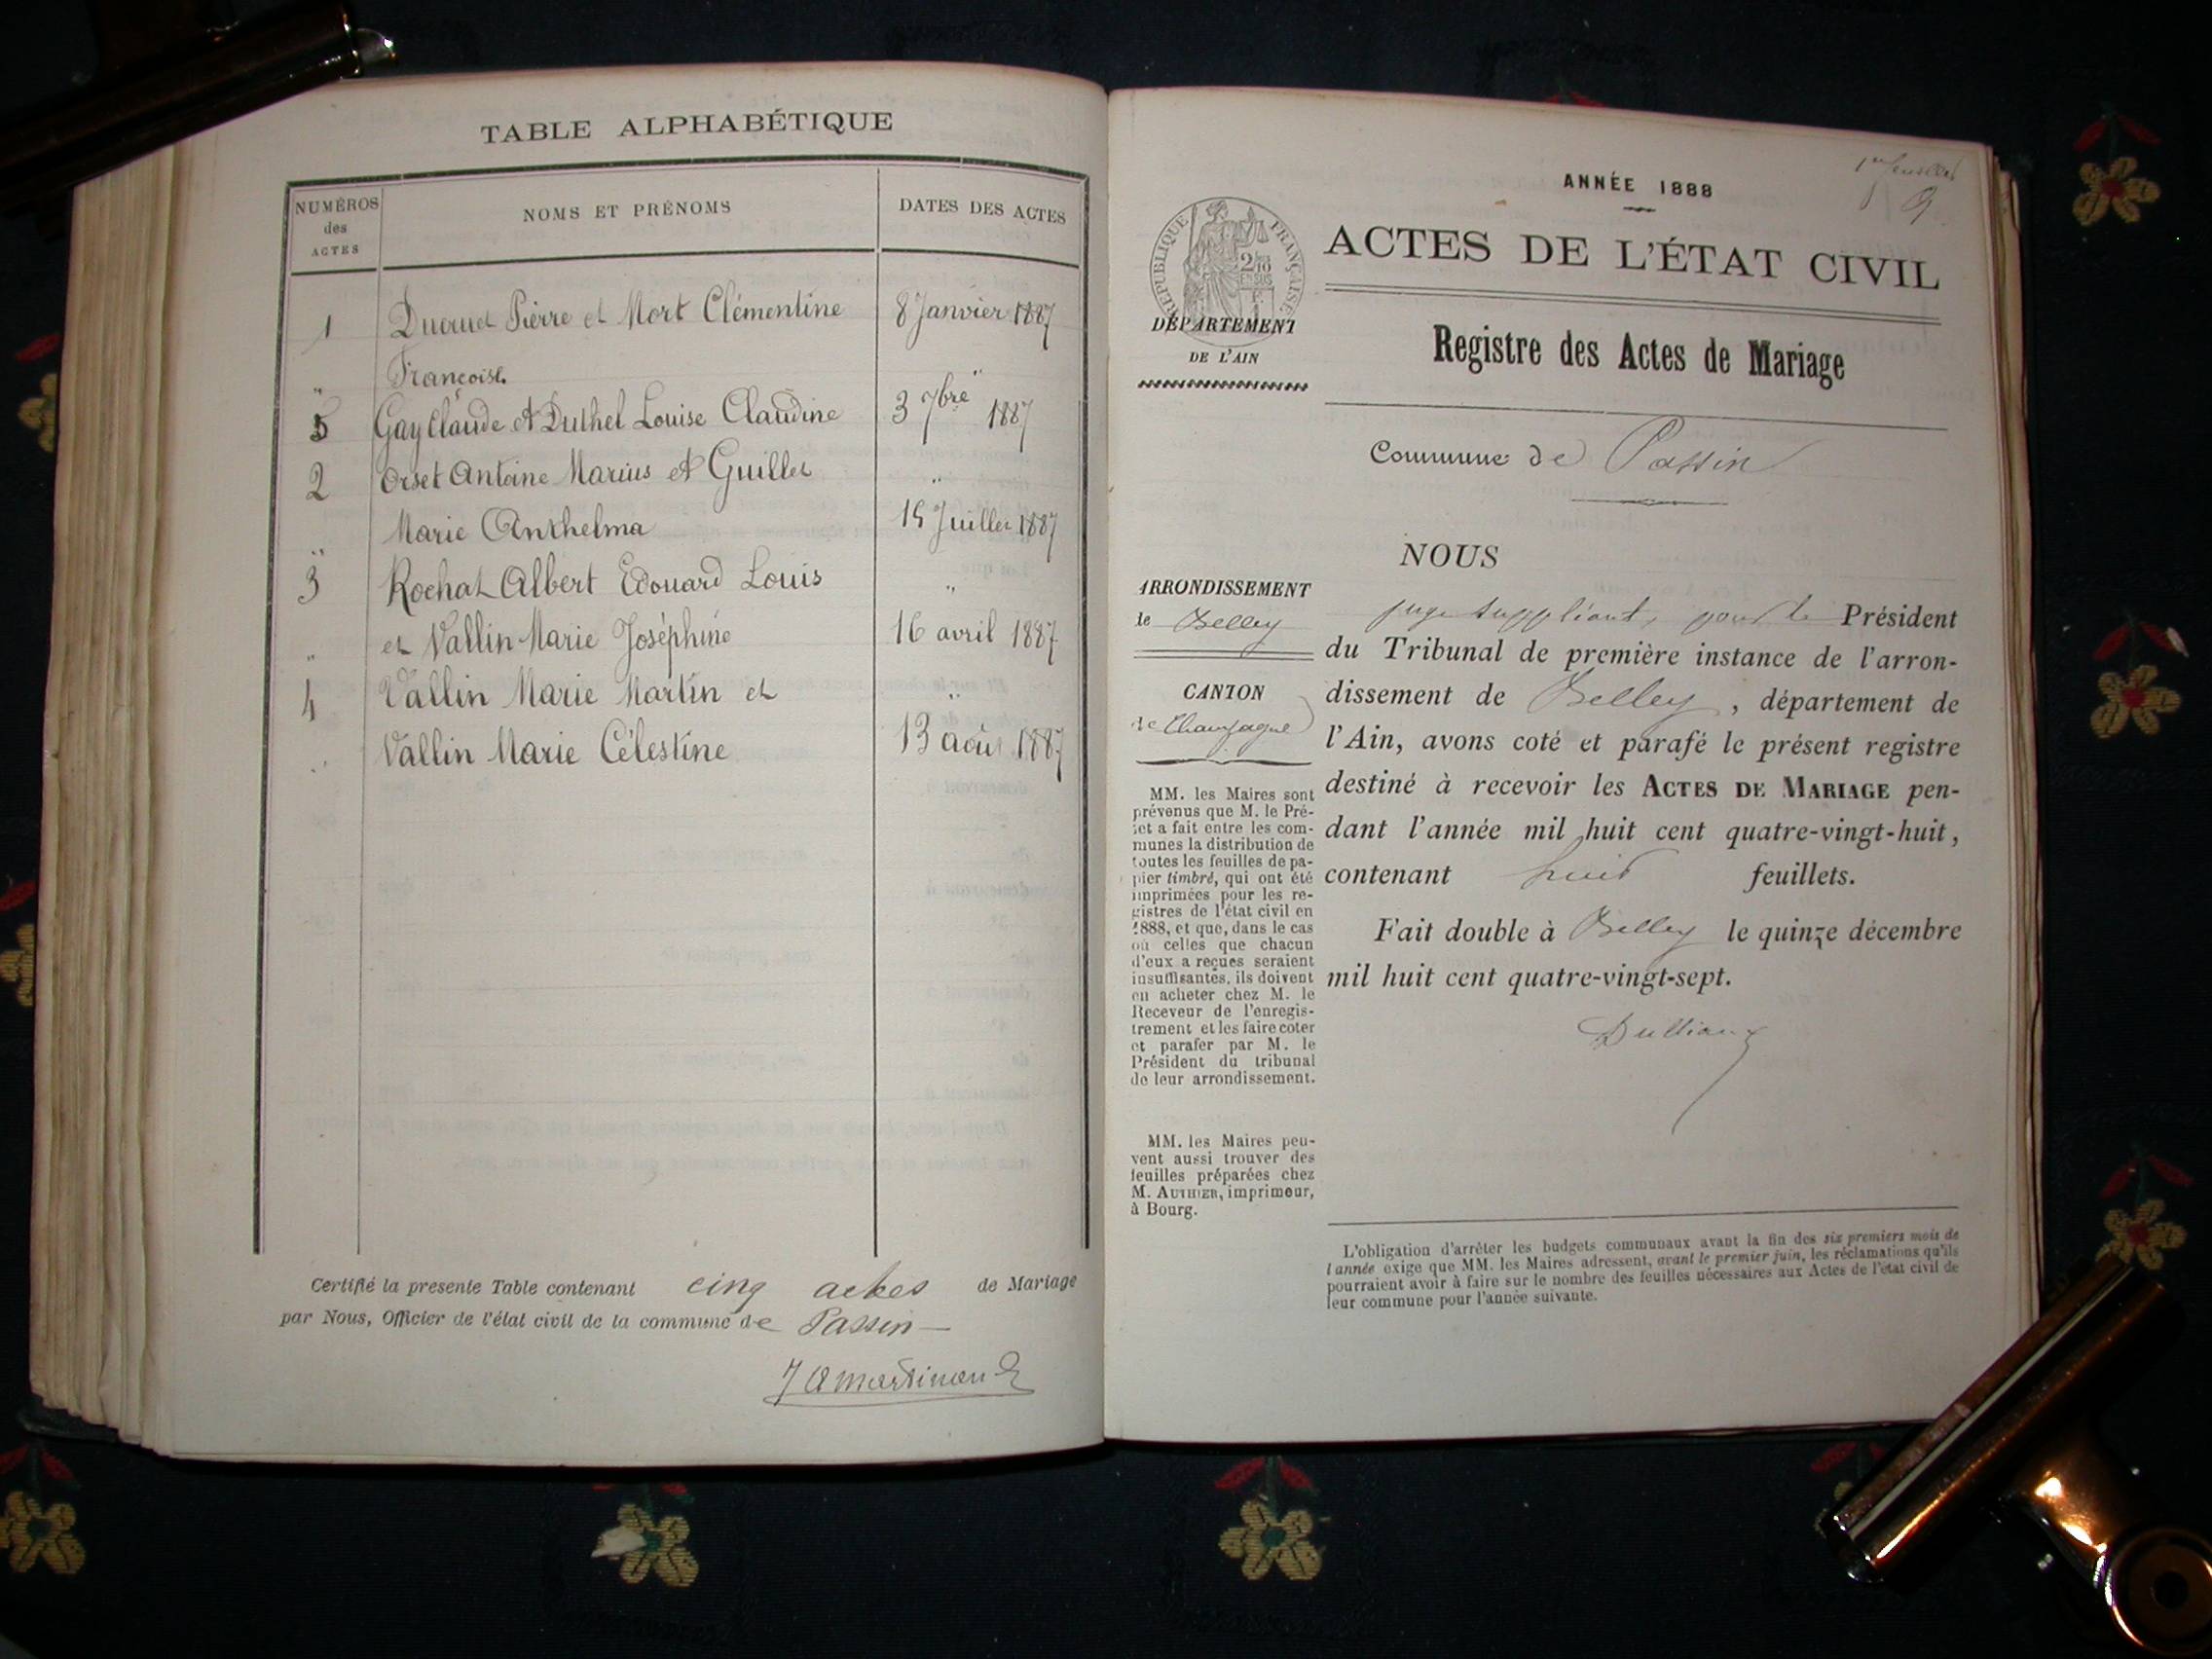 TABLE ALPHABÉTIQUE
NUMÉROS des ACTES
NOMS ET PRÉNOMS
DATES DES ACTES
1 Ducruet Pierre et Mort Clémentine 8 Janvier 1887
" Françoise. "
5 Gay Claude et Duthel Louise Claudine 3 7bre 1887
2 Orset Antoine Marius et Guillet "
" Marie Anthelma 15 Juillet 1887
3 Rochat Albert Edouard Louis "
" et Vallin Marie Joséphine 16 avril 1887
4 Vallin Marie Martin et "
" Vallin Marie Célestine 13 août 1887
Certifié la presente Table contenant cinq actes de Mariage
par Nous, Officier de l'état civil de la commune de Passin
ANNÉE 1888
RÉPUBLIQUE FRANÇAISE
ACTES DE L'ÉTAT CIVIL
DÉPARTEMENT
DE L'AIN
Registre des Actes de Mariage
Commune de Passin
NOUS
ARRONDISSEMENT
de Belley
CANTON
de Champagne
MM. les Maires sont
prévenus que M. le Pré-
fet a fait entre les com-
munes la distribution de
toutes les feuilles de pa-
pier timbré, qui ont été
imprimées pour les re-
gistres de l'état civil en
1888, et que, dans le cas
où celles que chacun
d'eux a reçues seraient
insuffisantes, ils doivent
en acheter chez M. le
Receveur de l'enregis-
trement et les faire coter
et parafer par M. le
Président du tribunal
de leur arrondissement.
MM. les Maires peu-
vent aussi trouver des
feuilles préparées chez
M. AUTHIER, imprimeur,
à Bourg.
juge suppléant, pour le Président
du Tribunal de première instance de l'arron-
dissement de Belley, département de
l'Ain, avons coté et parafé le présent registre
destiné à recevoir les ACTES DE MARIAGE pen-
dant l'année mil huit cent quatre-vingt-huit,
contenant huit feuillets.
Fait double à Belley le quinze décembre
mil huit cent quatre-vingt-sept.
L'obligation d'arrêter les budgets communaux avant la fin des six premiers mois de
l'année exige que MM. les Maires adressent, avant le premier juin, les réclamations qu'ils
pourraient avoir à faire sur le nombre des feuilles nécessaires aux Actes de l'état civil de
leur commune pour l'année suivante.